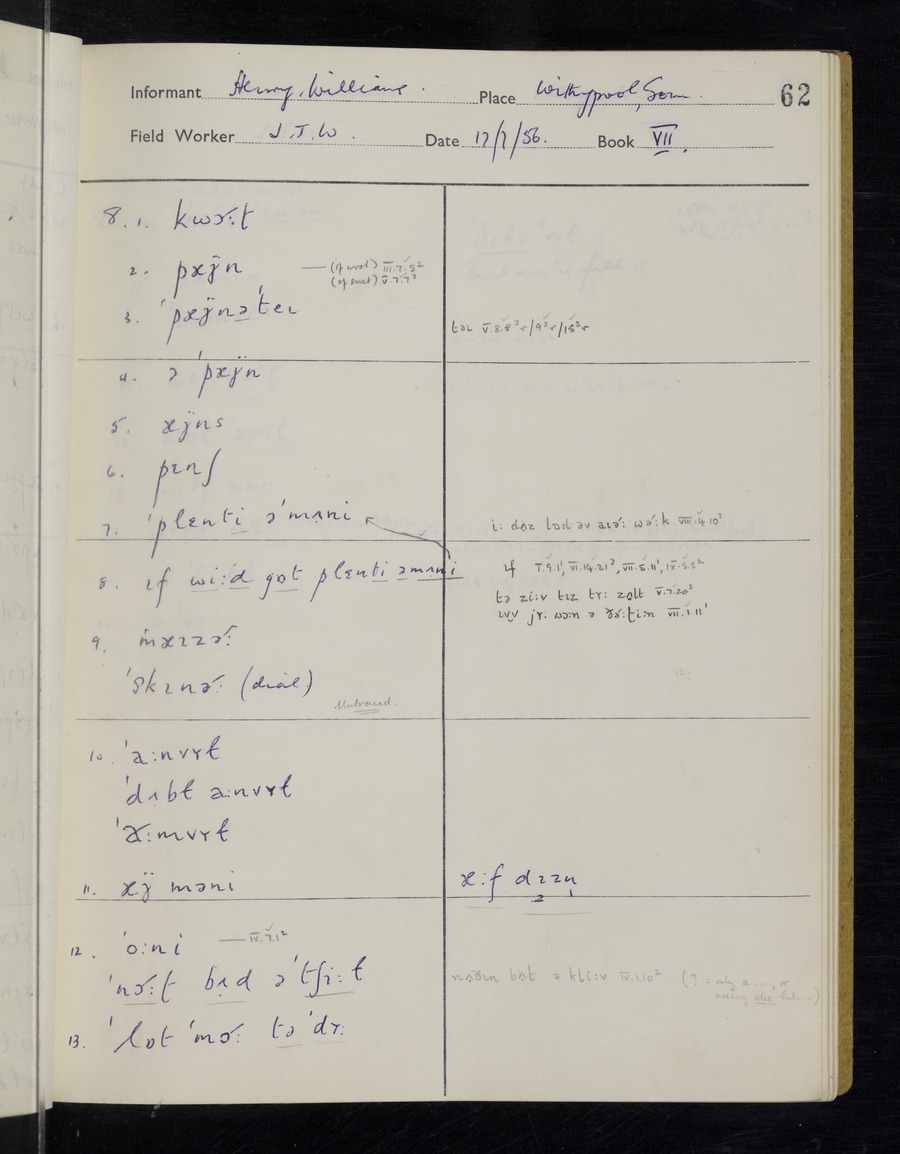 Informant Henry Williams. Place Withypool, Som. 62
Field Worker J.T.W. Date 17/7/56. Book VII.
8. 1. kwɔ˞:t
2. pæÿn — (of wool) III.7.5² (of suet) V.7.7³
3. ˈpæÿnəˈteɪ təɪ V.8.8³r/9³r/15³r
4. ə ˈpæÿn
5. æÿns
6. pɪnʃ
7. ˈplɛnti əˈmʌni i: dʌz lɒd əv aɪɚ: wɚ:k VIII.4.10³
8. ɪf wi:d gɒt plɛnti əmʌni ɪf V.9.1¹, VI.14.21³, VII.5.11¹, IX.5.5²
tə zi:v tɪz tɤ: zɒlt V.7.20³
9. mæɪzɚ: VII.1.11¹
ˈskɪnɚ: (dial)
Untraced.
10. ˈa:nvɤt
ˈdʌbt a:nvɤt
ˈa:mvɤt
11. æÿ məni æ:f dzzn
12. ˈo:ni — IV.7.1²
ˈnɔ˞:t bʌd əˈtʃi:t bʌt ə kli:v IV.1.10² (? = only a ..., or
nothing else but ...)
13. ˈlɒt ˈmɔ˞: tə ˈdɤ: